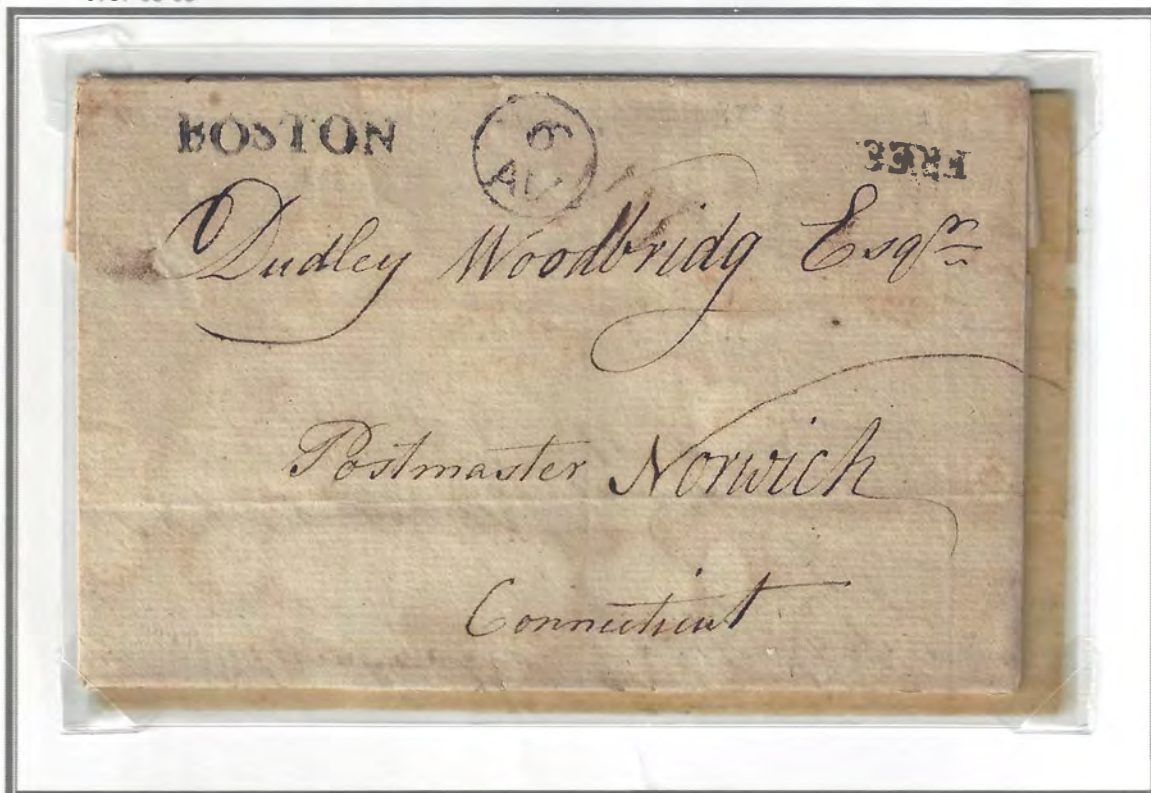 BOSTON 6 AU FREE
Dudley Woodbridg Esqr
Postmaster Norwich
Connecticut